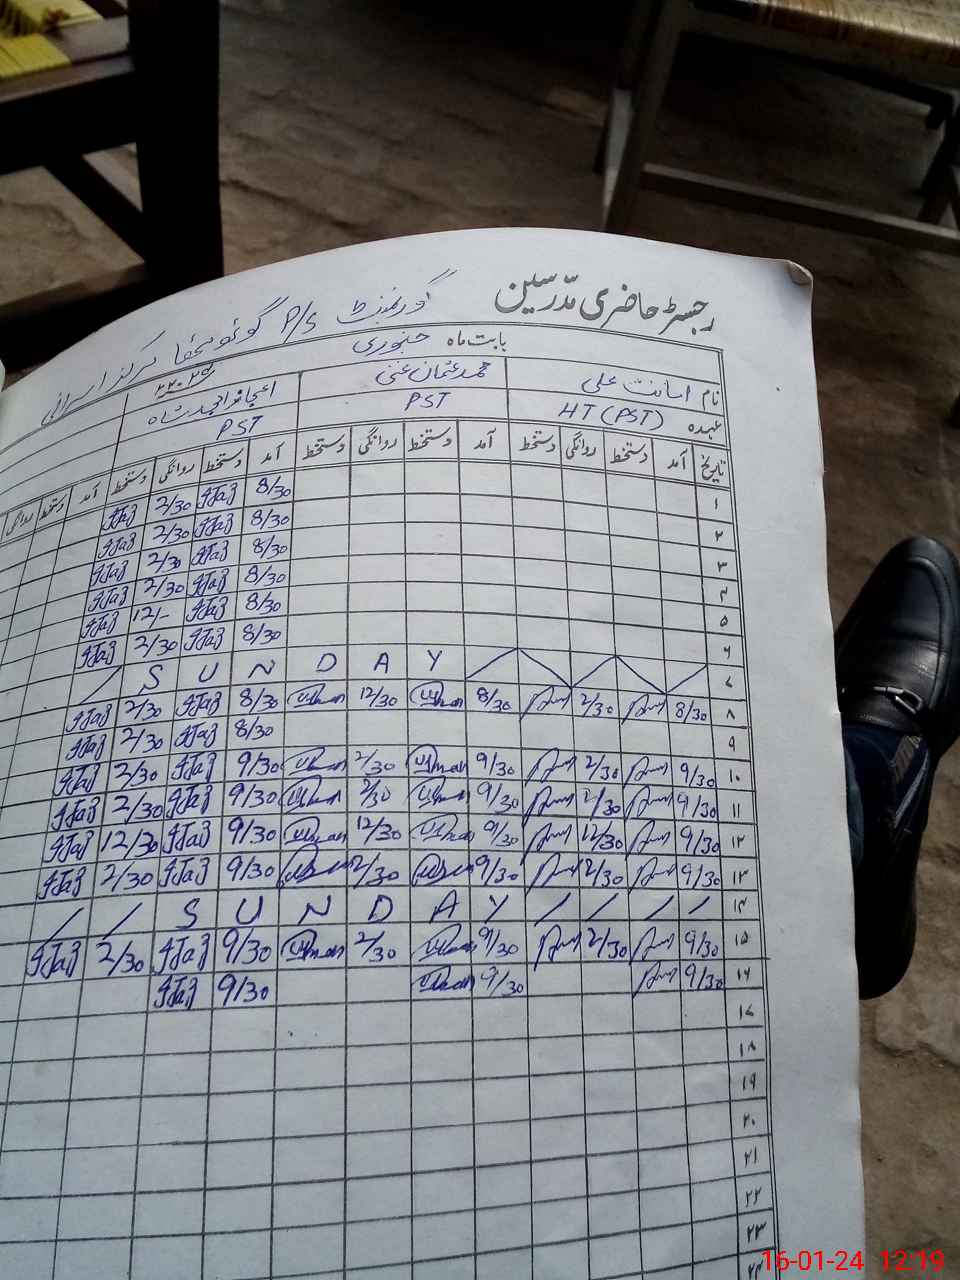 رجسٹر حاضری مدّرسین گورنمنٹ P/S گوٹھ
بابت ماہ جنوری ۲۰۲۴
نام امانت علی محمد عثمان غنی اعجاز احمد شاہ
عہدہ HT (PST) PST PST
تاریخ آمد دستخط روانگی دستخط آمد دستخط روانگی دستخط آمد دستخط روانگی دستخط آمد دستخط روانگی
۱ 8/30 IJaz 2/30 IJaz
۲ 8/30 IJaz 2/30 IJaz
۳ 8/30 IJaz 2/30 IJaz
۴ 8/30 IJaz 2/30 IJaz
۵ 8/30 IJaz 12/- IJaz
۶ 8/30 IJaz 2/30 IJaz
۷ S U N D A Y
۸ 8/30 2/30 8/30 Usman 12/30 Usman 8/30 IJaz 2/30 IJaz
۹ 8/30 IJaz 2/30 IJaz
۱۰ 9/30 2/30 9/30 Usman 2/30 Usman 9/30 IJaz 2/30 IJaz
۱۱ 9/30 2/30 9/30 Usman 2/30 Usman 9/30 IJaz 2/30 IJaz
۱۲ 9/30 12/30 9/30 Usman 12/30 Usman 9/30 IJaz 12/30 IJaz
۱۳ 9/30 2/30 9/30 Usman 2/30 Usman 9/30 IJaz 2/30 IJaz
۱۴ S U N D A Y
۱۵ 9/30 2/30 9/30 Usman 2/30 Usman 9/30 IJaz 2/30 IJaz
۱۶ 9/30 9/30 Usman 9/30 IJaz
۱۷
۱۸
۱۹
۲۰
۲۱
۲۲
۲۳
۲۴
16-01-24 12:19